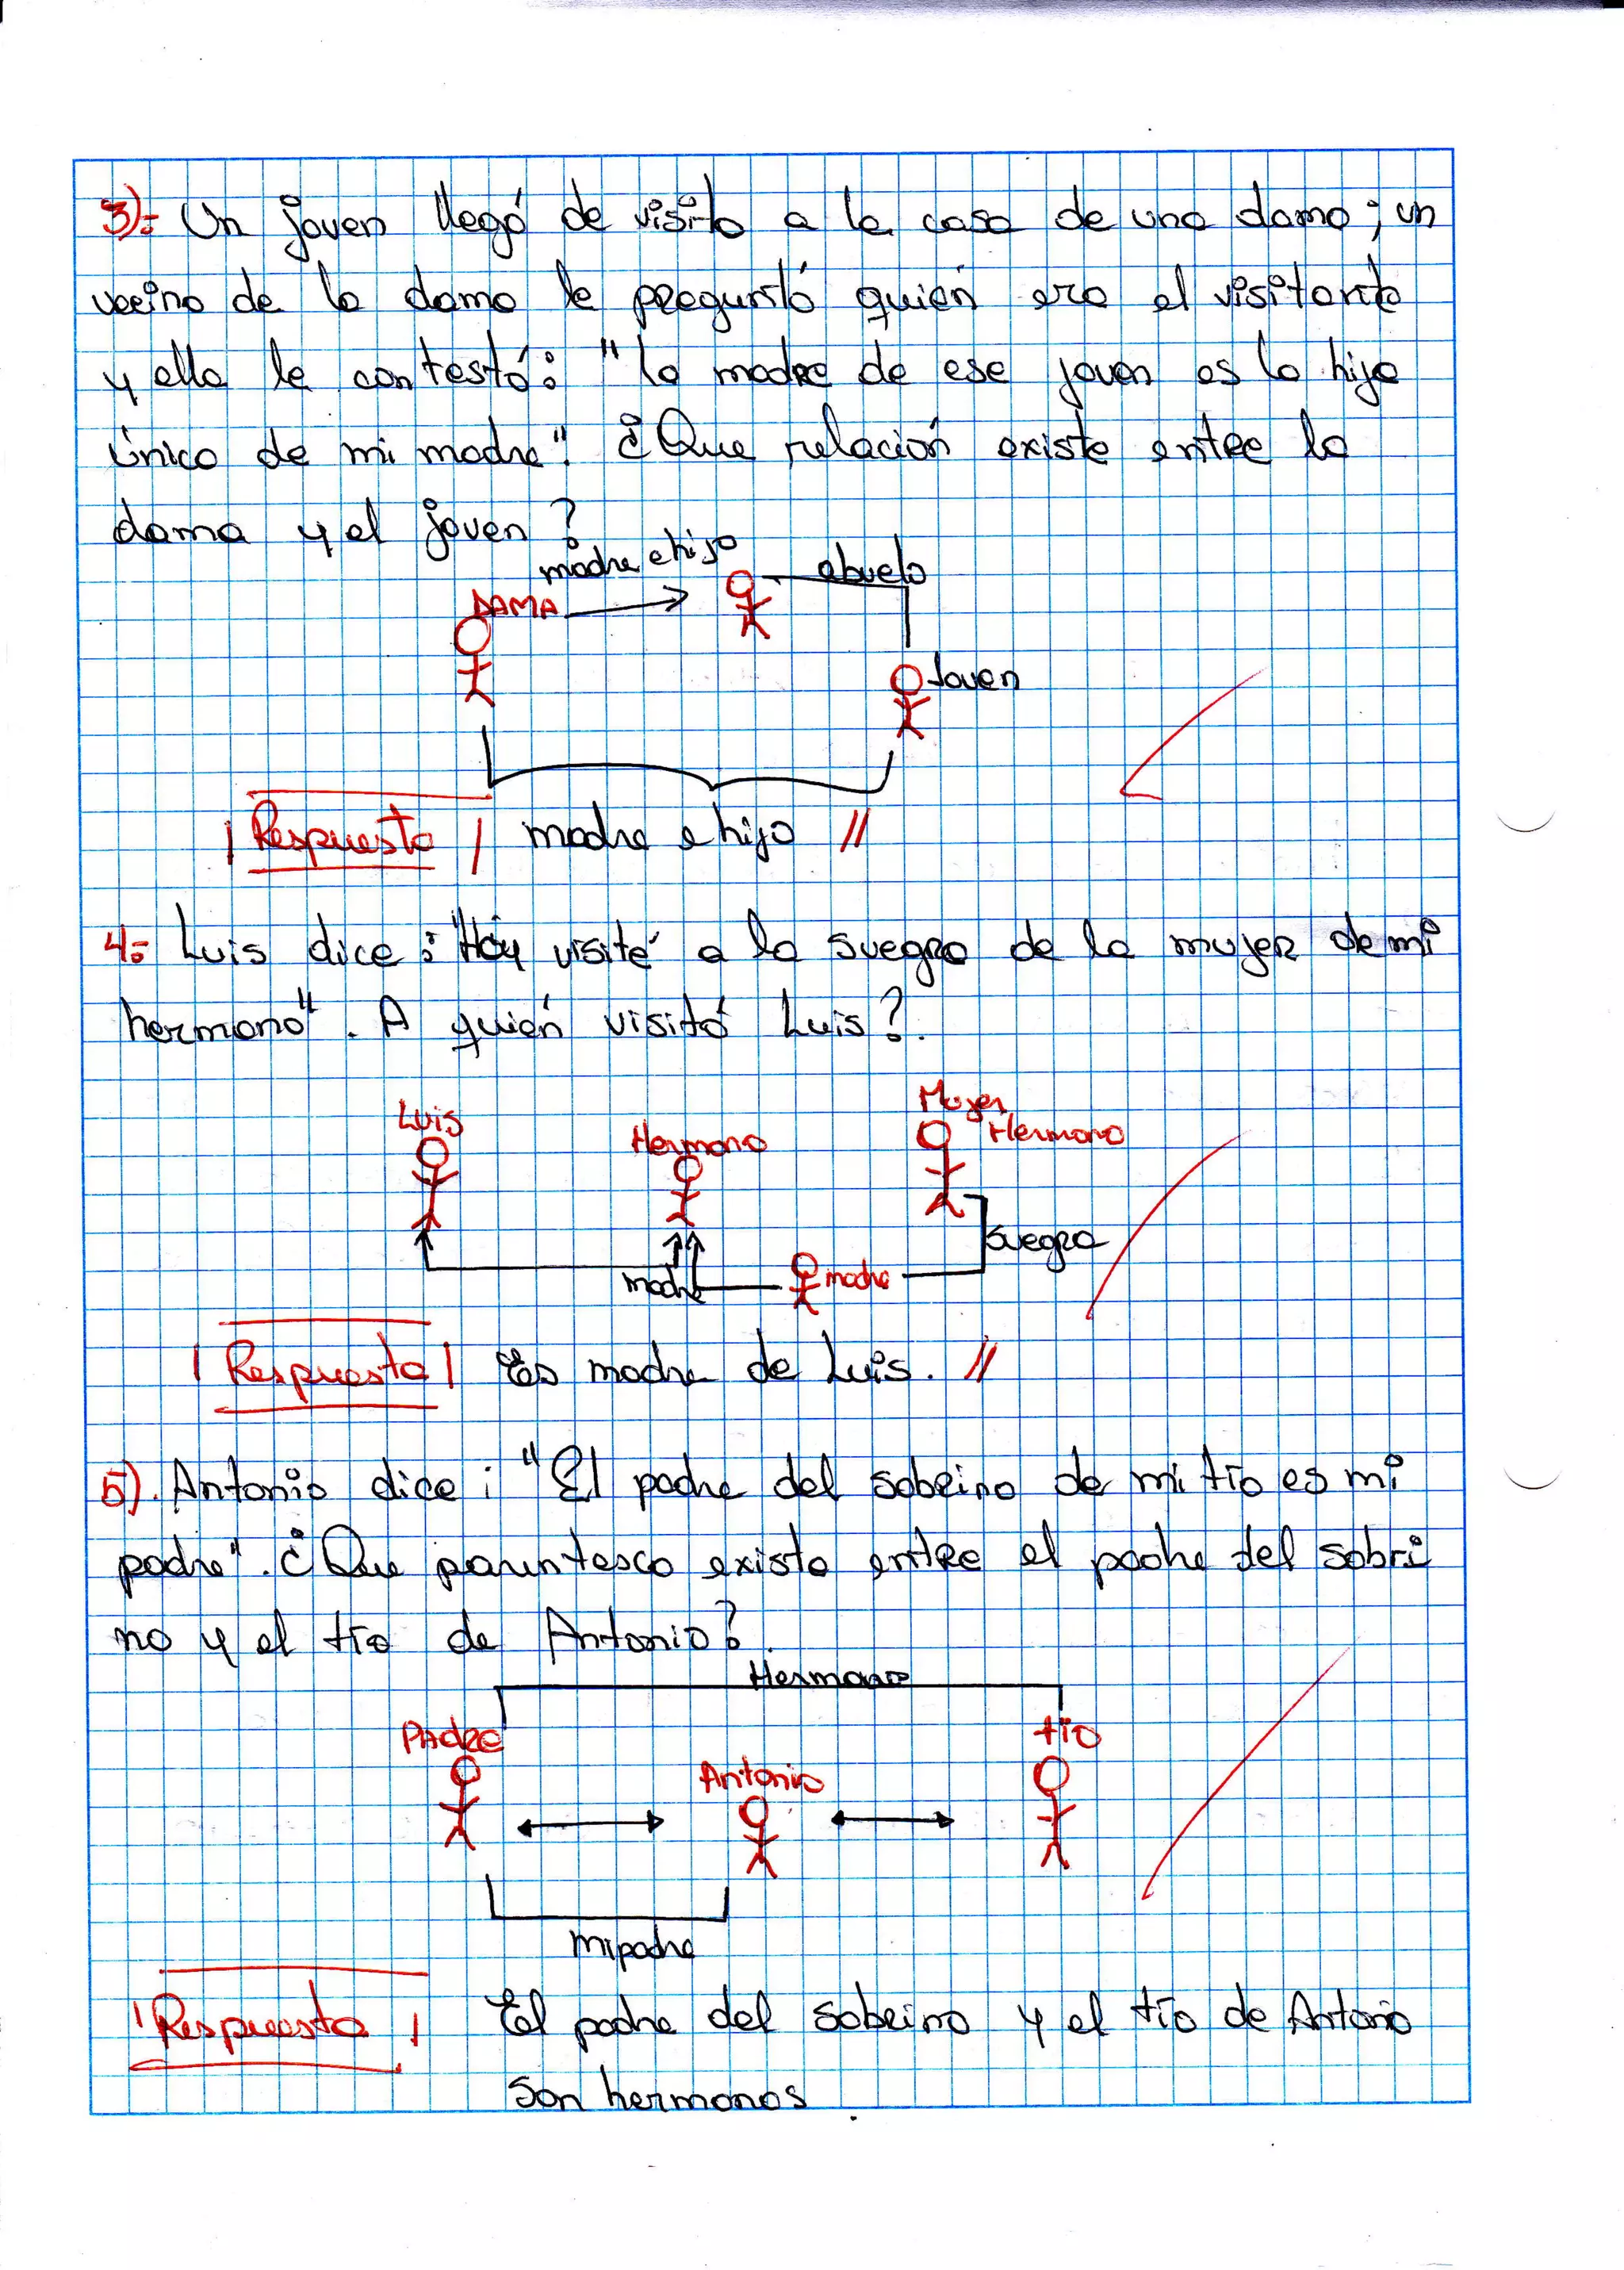 3):- Un joven llegó de visita a la casa de una dama; un
vecino de la dama le preguntó quién era el visitante
y ella le contestó: "la madre de ese joven es la hija
única de mi madre". ¿Que relación existe entre la
dama y el joven?
madre e hijo
abuela
DAMA
Joven
Respuesta madre e hijo //
4:- Luis dice: "Hoy visité a la suegra de la mujer de mi
hermano". A quién visitó Luis?.
Luis
Hermano
Mujer
Hermano
Suegra
madre
madre
Respuesta Es madre de Luis. //
5). Antonio dice: "El padre del sobrino de mi tío es mi
padre". ¿Que parentesco existe entre el padre del sobri
no y el tío de Antonio?.
Hermano
PAdre
Antonio
tío
mi padre
Respuesta El padre del sobrino y el tío de Antonio
Son hermanos